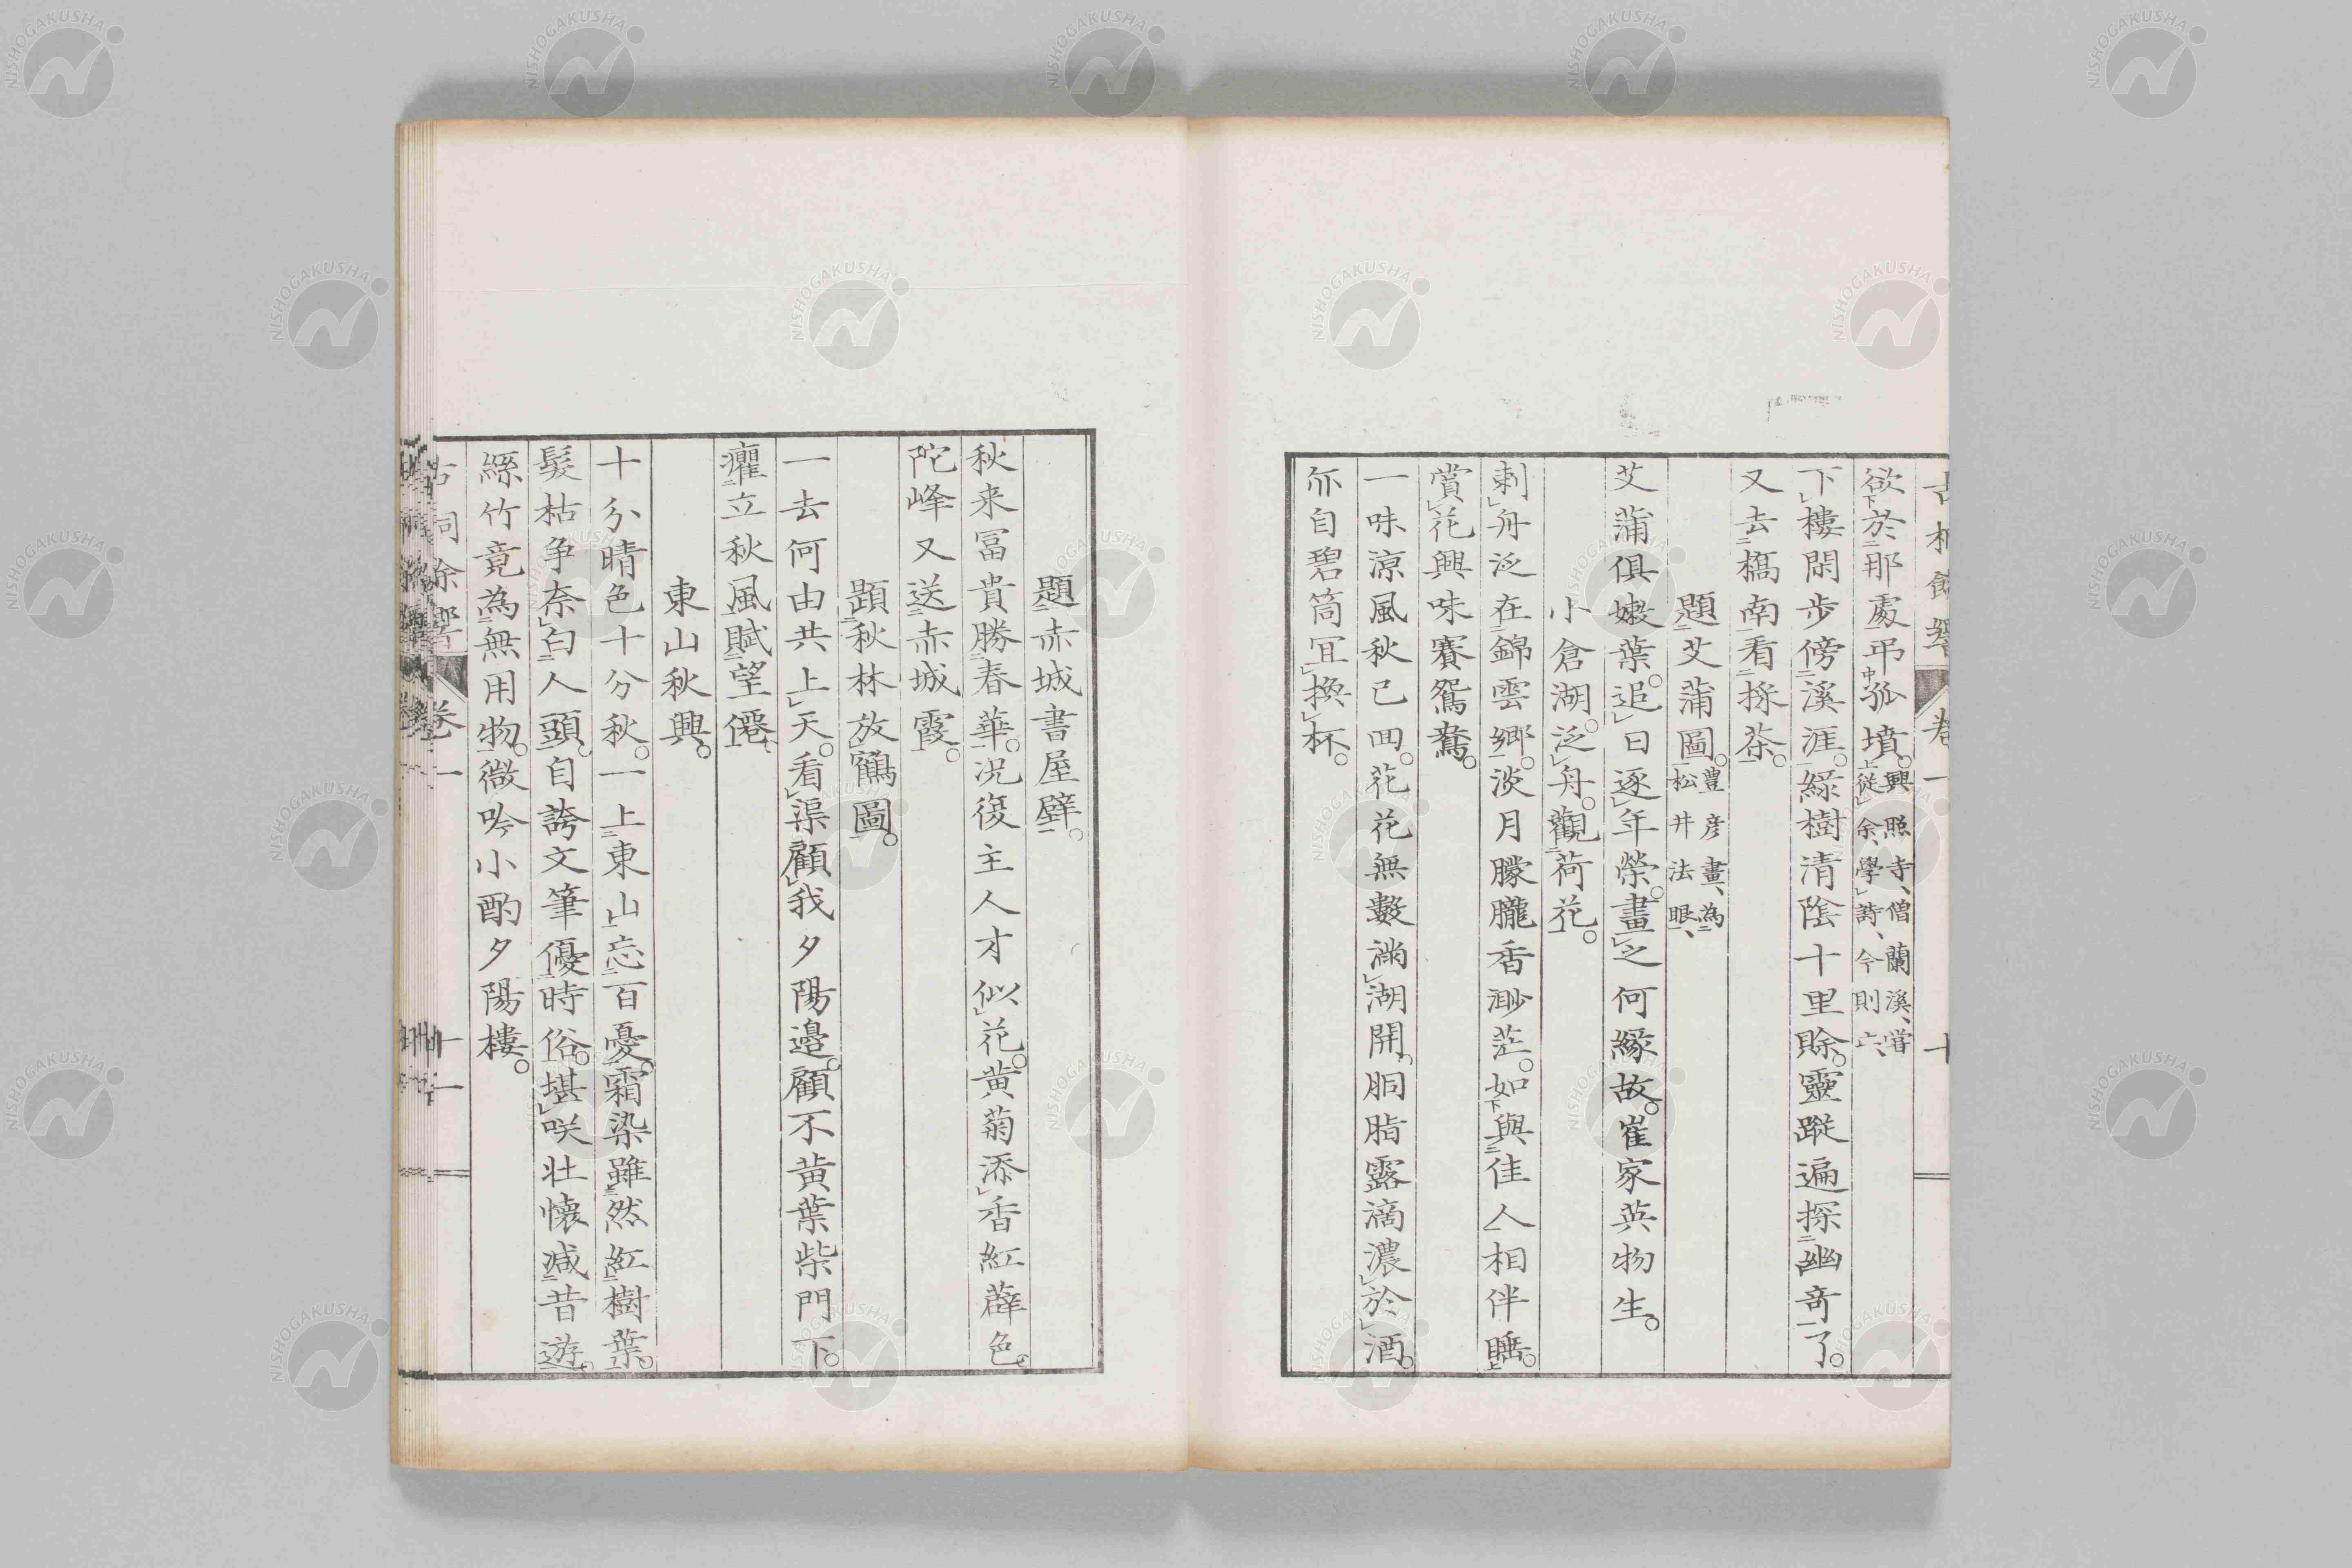 欲於那處弔孤墳。興照寺、僧蘭溪、嘗
從余學詩、今則亡、
下樓閑步傍溪涯。綠樹清陰十里賖。靈蹤遍探幽奇了。
又去橋南看採茶。
題艾蒲圖。豐彦畫、為
松井法眼、
艾蒲俱嫩葉。追日逐年榮。畫之何緣故。崔家英物生。
小倉湖。泛舟。觀荷花。
刺舟泛在錦雲鄉。淡月朦朧香渺茫。如與佳人相伴睡。
賞花興味賽鴛鴦。
一味涼風秋已回。花花無數滿湖開。胭脂露滴濃於酒。
爾自碧筒冝換杯。
題赤城書屋壁。
秋来冨貴勝春華。况復主人才似花。黄菊添香紅蘚色。
陀峰又送赤城霞。
題秋林放鶴圖。
一去何由共上天。看渠顧我夕陽邉。顧不黄葉柴門下。
癯立秋風賦望僊。
東山秋興。
十分晴色十分秋。一上東山忘百憂。霜染雖然紅樹葉。
髮枯争奈白人頭。自誇文筆優時俗。堪咲壮懐減昔遊。
絲竹竟為無用物。微吟小酌夕陽樓。
卷一